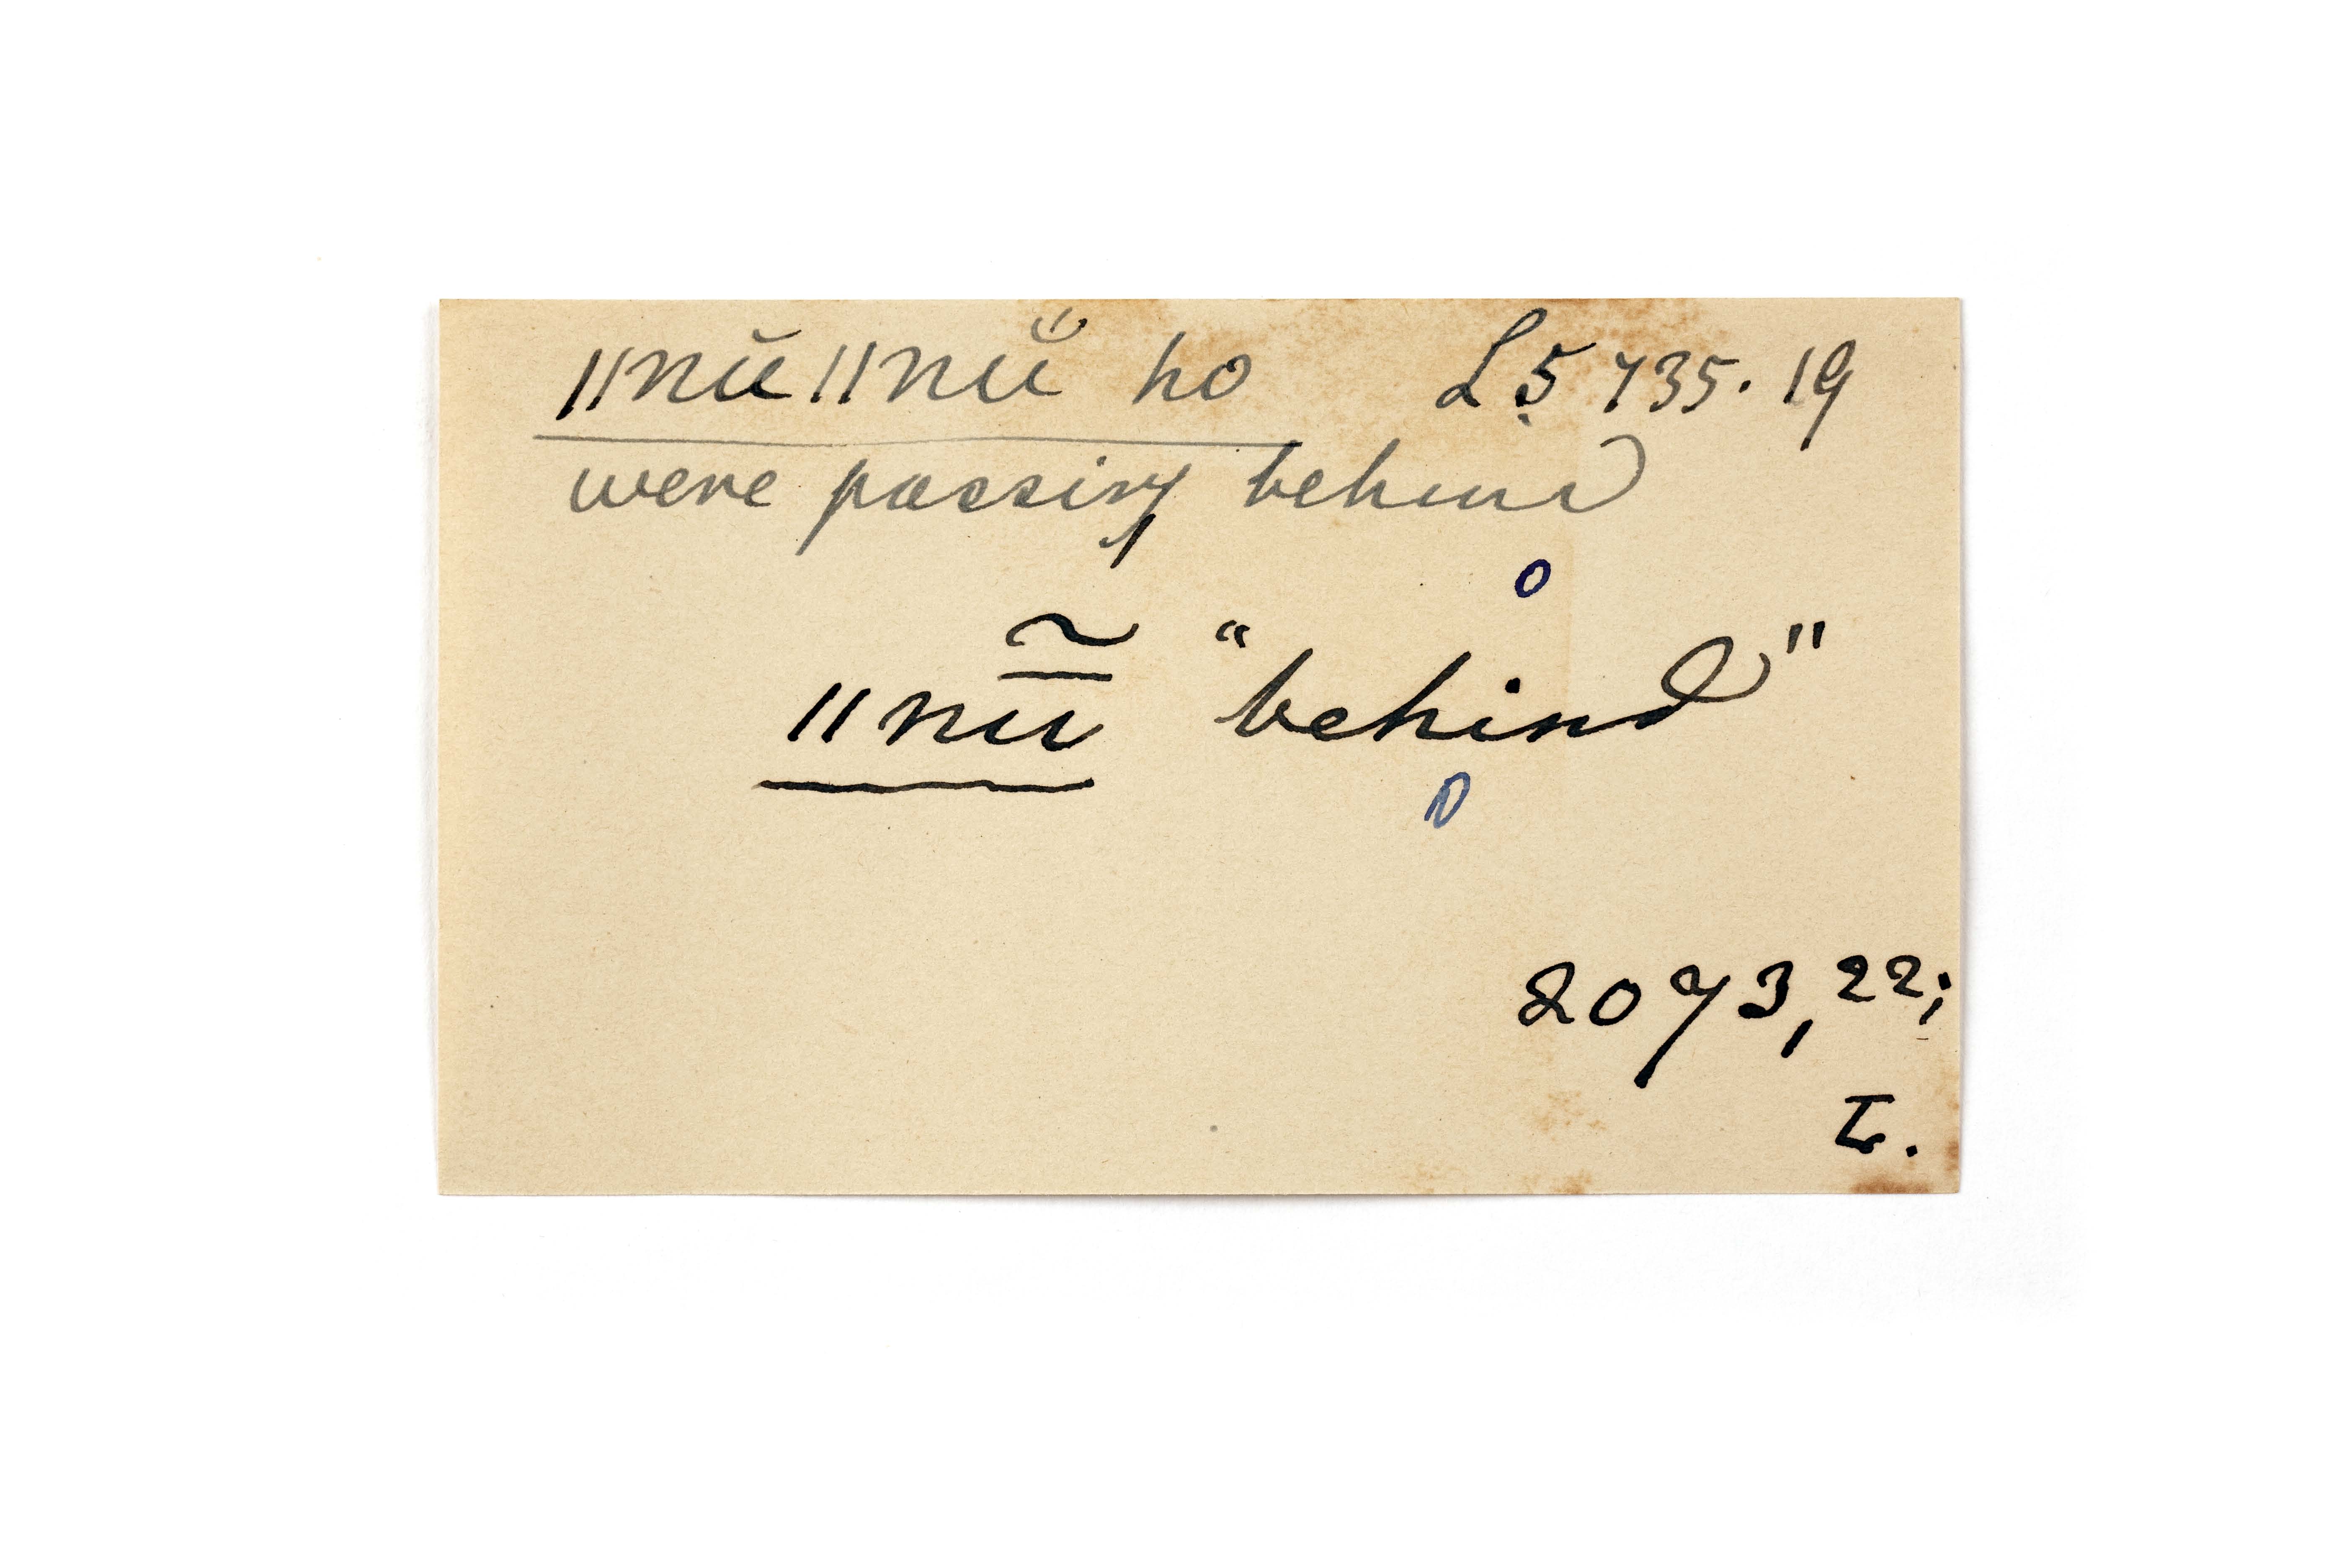 ǁnŭǁnŭ̋ ho L5 735.19
were passing behind
o
ǁnū̃ "behind"
0
2073, 22;
L.